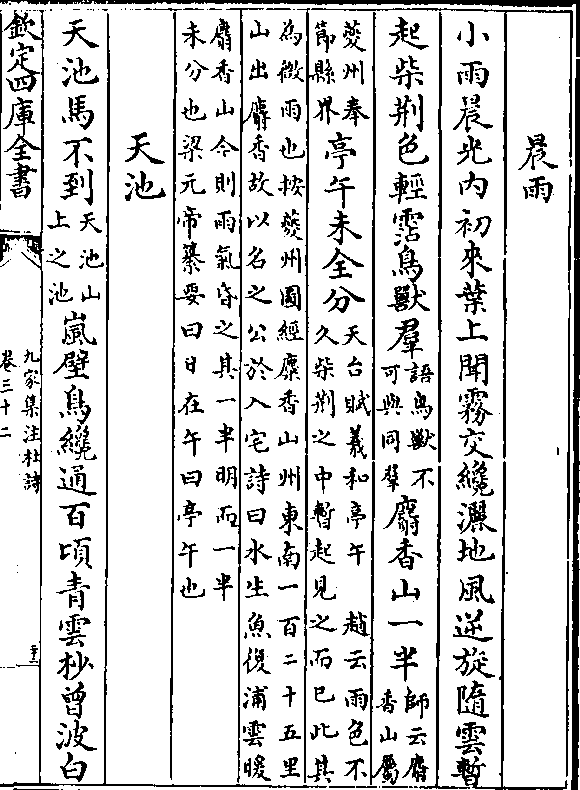 晨雨
小雨晨光内初來葉上聞霧交纔灑地風逆旋隨雲暫
起柴荆色輕霑鳥獸羣語鳥獸不可與同羣麝香山一半師云麝香山屬
夔州奉節縣界亭午未全分天台賦羲和亭午　趙云雨色不久柴荆之中暫起見之而已此其
為微雨也按夔州圖經麋香山州東南一百二十五里
山出麝香故以名之公於入宅詩曰水生魚復浦雲暖
麝香山今則雨氣昏之其一半明而一半
未分也梁元帝纂要曰日在午曰亭午也
天池
天池馬不到天池山上之池嵐壁鳥纔通百頃青雲杪曾波白
欽定四庫全書
九家集注杜詩
卷三十二